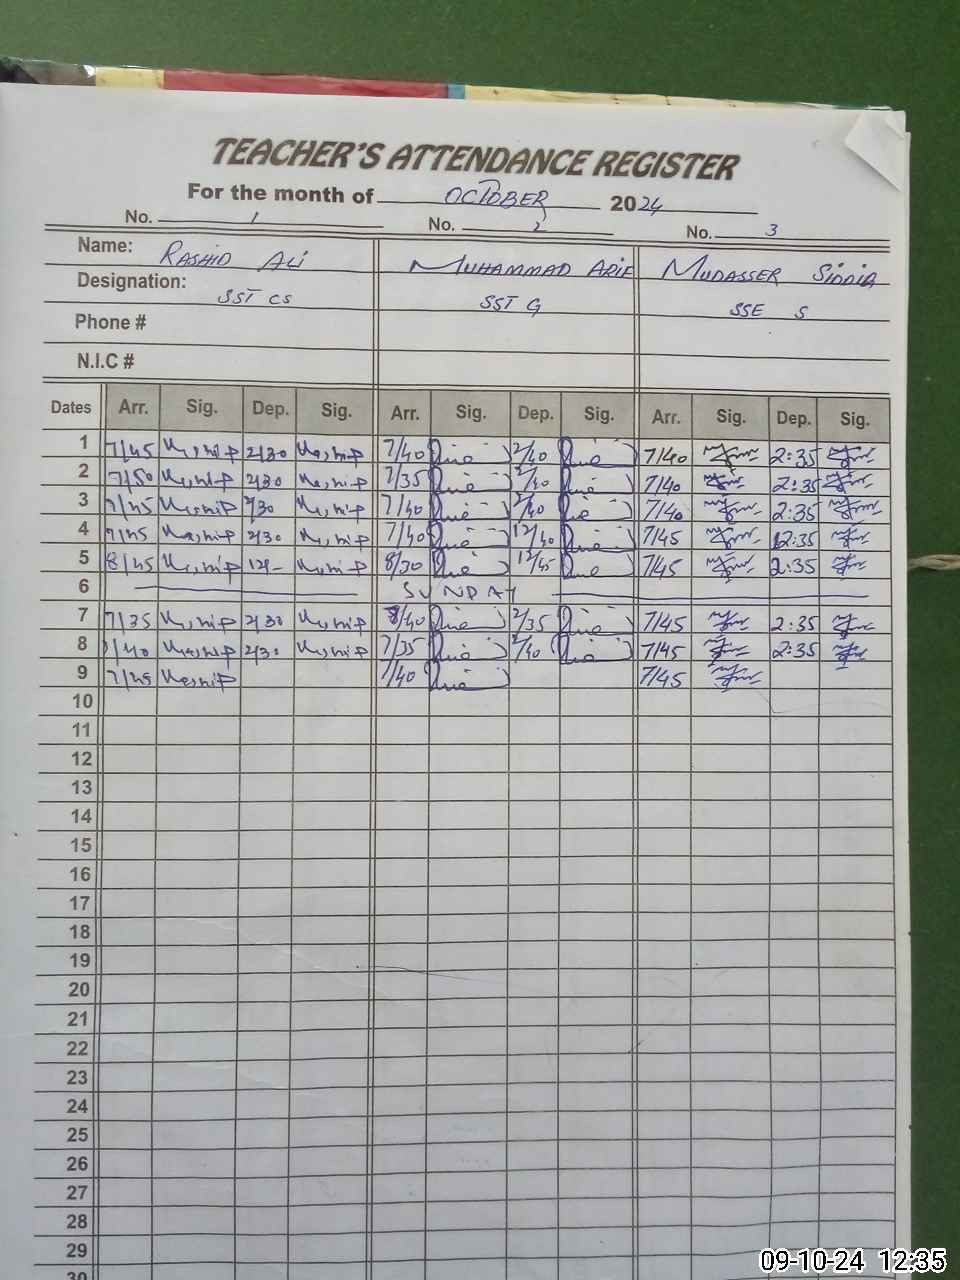 TEACHER'S ATTENDANCE REGISTER
For the month of OCTOBER 2024
No. 1 No. 2 No. 3
Name: RASHID ALI MUHAMMAD ARIF MUDASSER SIDDIQ
Designation: SST CS SST G SSE S
Phone #
N.I.C #
Dates Arr. Sig. Dep. Sig. Arr. Sig. Dep. Sig. Arr. Sig. Dep. Sig.
1 7/45 2/30 7/40 2/40 7/40 2:35
2 7/50 2/30 7/35 2/40 7/40 2:35
3 7/45 2/30 7/40 2/40 7/40 2:35
4 7/45 2/30 7/40 12/40 7/45 12:35
5 8/45 12- 8/30 12/45 7/45 2:35
6 SUNDAY
7 7/35 2/30 8/40 2/35 7/45 2:35
8 7/40 2/30 7/35 2/40 7/45 2:35
9 7/45 7/40 7/45
10
11
12
13
14
15
16
17
18
19
20
21
22
23
24
25
26
27
28
29
30
09-10-24 12:35